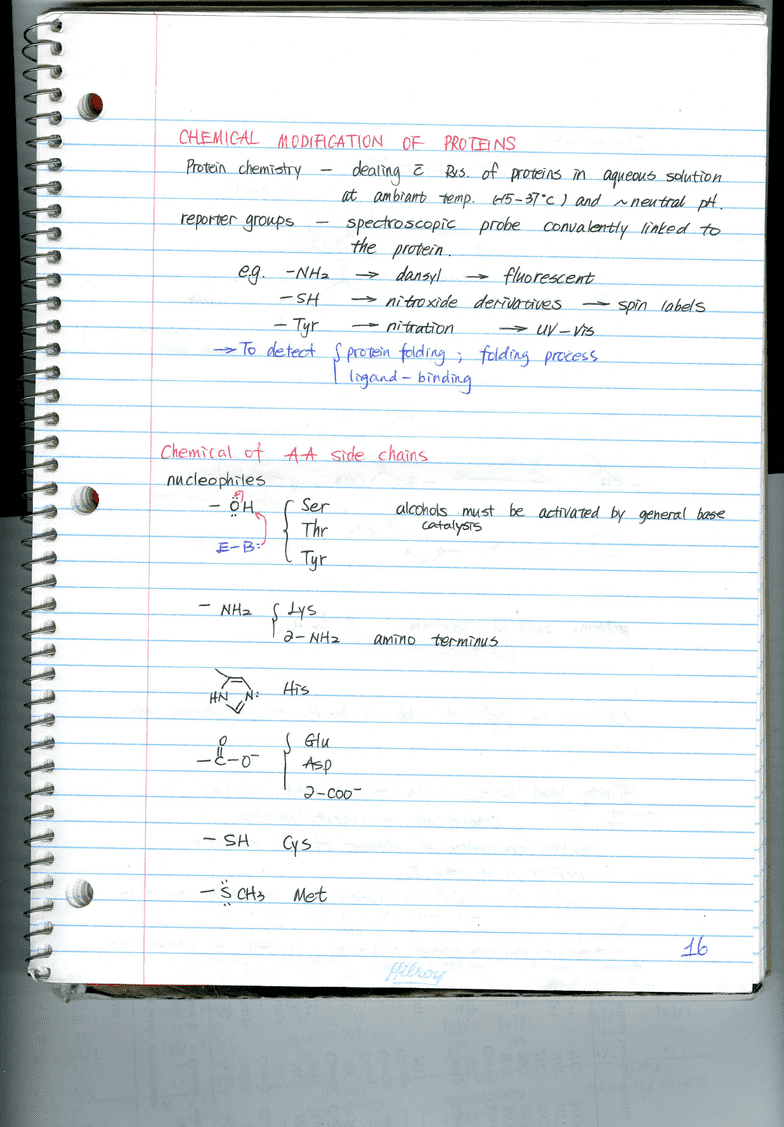 CHEMICAL MODIFICATION OF PROTEINS
Protein chemistry — dealing c̄ Rxs. of proteins in aqueous solution
at ambiant temp. (15-37°C) and ~neutral pH.
reporter groups — spectroscopic probe convalently linked to
the protein.
e.g. -NH2 → dansyl → fluorescent
-SH → nitroxide derivatives → spin labels
- Tyr → nitration → UV-Vis
→ To detect { protein folding ; folding process
ligand-binding
Chemical of AA side chains
nucleophiles
- ÖH { Ser alcohols must be activated by general base
catalysis
Thr
E-B:
Tyr
- NH2 { Lys
α-NH2 amino terminus
HN N: His
O
-C-O⁻ { Glu
Asp
α-COO⁻
- SH Cys
- S̈ CH3 Met
16
Hilroy